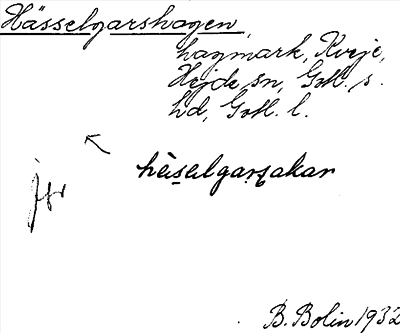 Hässelgarshagen,
hagmark, Kvije,
Hejde sn, Gotl. s.
hd, Gotl. l.
jfr
B. Bolin 1932